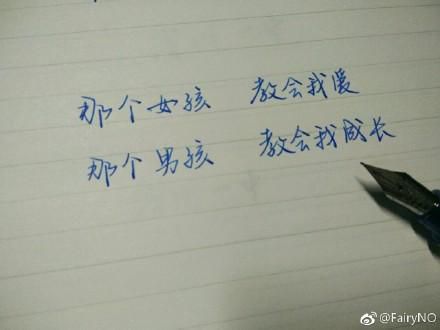 那个女孩 教会我爱
那个男孩 教会我成长
@FairyNO